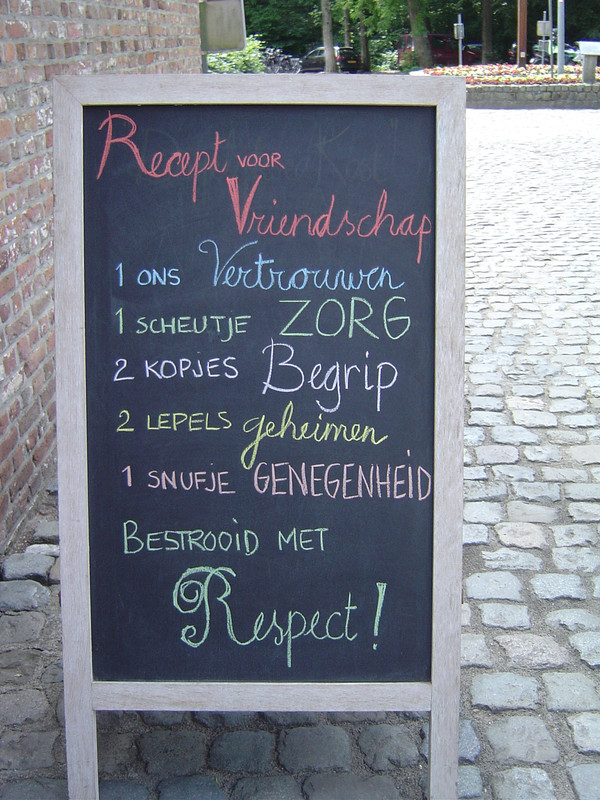 Recept voor
Vriendschap
1 ons Vertrouwen
1 scheutje ZORG
2 kopjes Begrip
2 lepels geheimen
1 snufje GENEGENHEID
Bestrooid met
Respect!